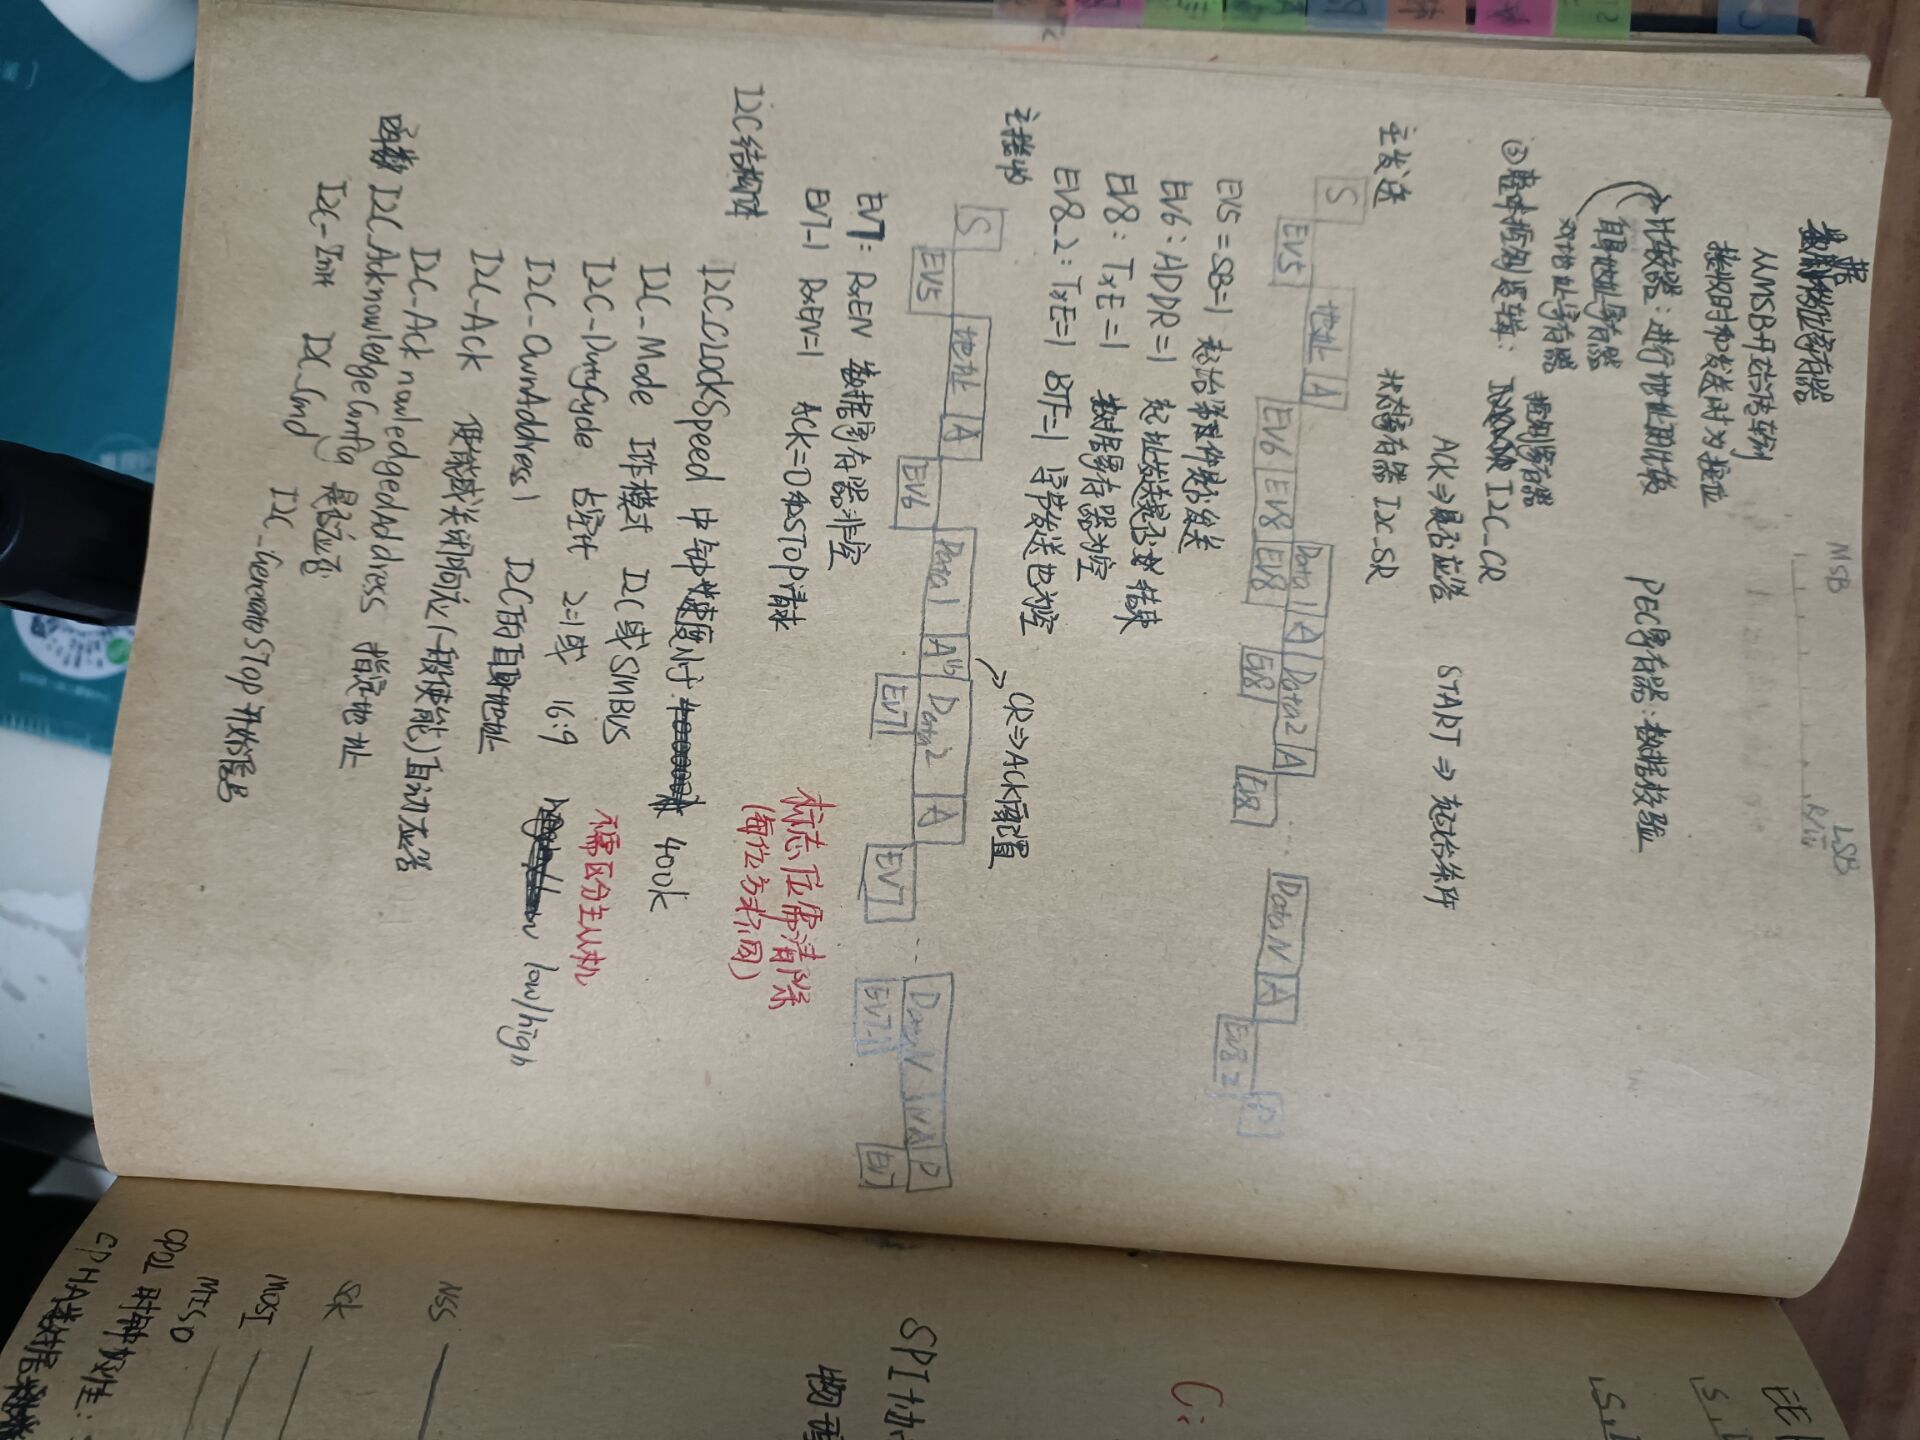 据
数据移位寄存器
MSB LSB
R/W
从MSB开始传输
接收时和发送时为按位
比较器：进行地址的比较 PEC寄存器：数据校验
自身地址寄存器
双地址寄存器
控制寄存器
③整体控制逻辑： I2C_CR
ACK⇒是否应答 START ⇒ 起始条件
主发送 状态寄存器 I2C_SR
S 地址 A Data1 A Data2 A ... DataN A P
EV5 EV6 EV8 EV8 EV8 EV8 EV8_2
EV5=SB=1 起始条件是否发送
EV6：ADDR=1 起址发送是否结束
EV8：TxE=1 数据寄存器为空
EV8_2：TxE=1 BTF=1 字节发送也为空
主接收 CR⇒ACK配置
S 地址 A Data1 A⁽¹⁾ Data2 A ... DataN NA P
EV5 EV6 EV7 EV7 EV7-1 EV7
EV7： RxEN 数据寄存器非空
EV7-1 RxEN=1 ACK=0和STOP请求
标志位需清除
(每位方式不同)
I2C结构体
I2C_CLockSpeed 中钟速度小于 400k
I2C_Mode 工作模式 I2C或SMBUS
不需区分主从机
I2C_DutyCycle 占空比 2=1或 16:9 low/high
I2C_OwnAddress1 I2C的自身地址
I2C_Ack 使能或关闭响应(一般使能)自动应答
I2C_AcknowledgedAddress 指定地址
函数 I2C_AcknowledgeConfig 是否应否
I2C_Init I2C_Cmd I2C_GenerateSTOP 开始信号
EE
S
S
C:
SPI协
物理
NSS
SCK
MOSI
MISO
CPOL 时钟极性：
CPHA 数据